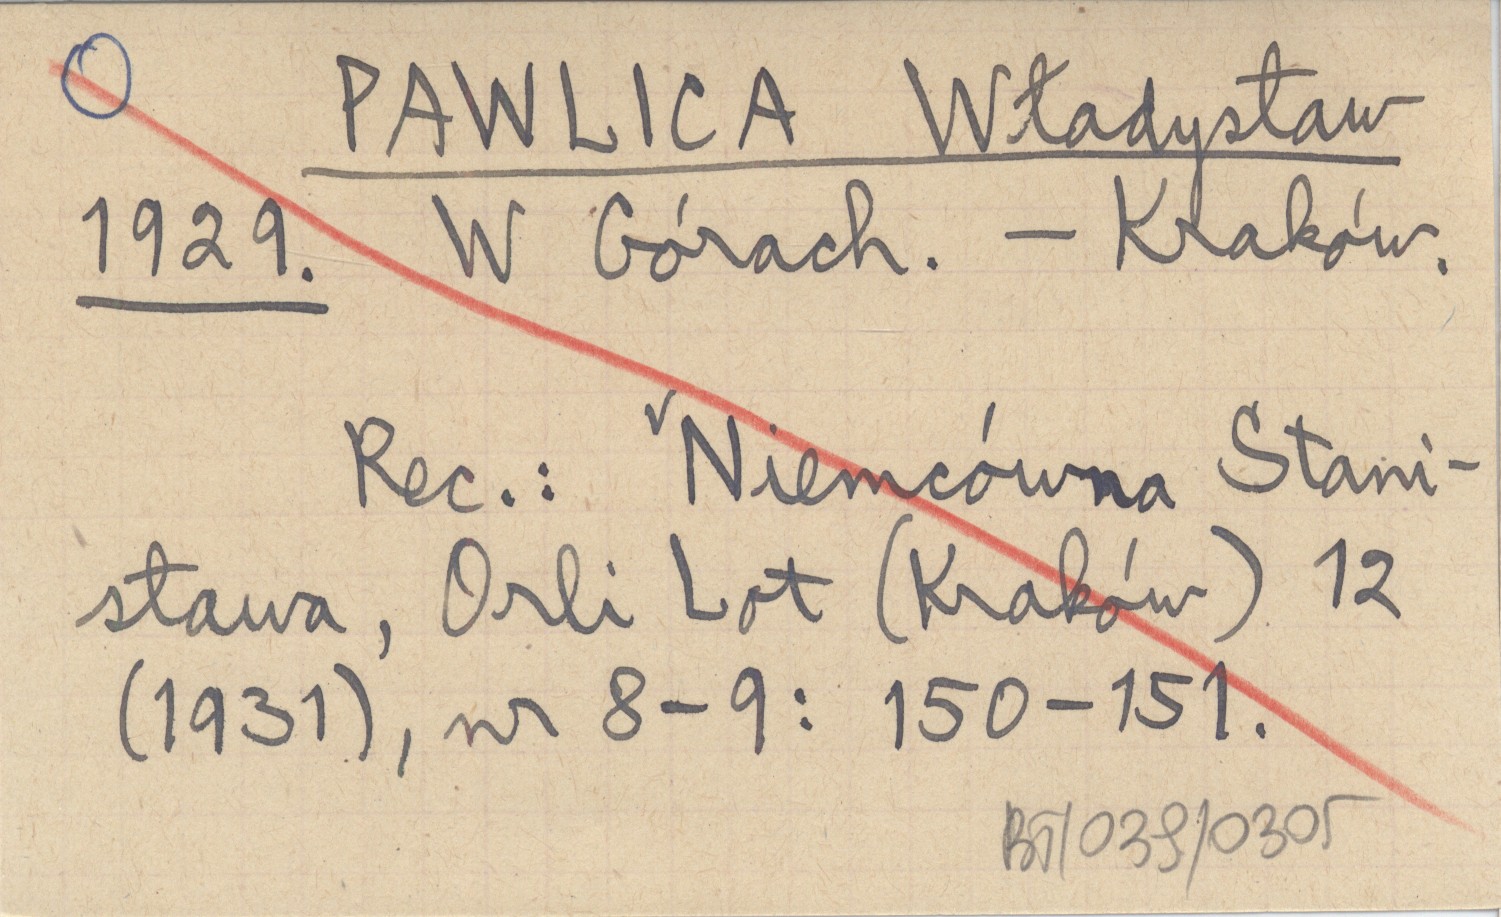 PAWLICA Władysław
1929. W Górach. – Kraków.
Rec.: Niemcówna Stani-
sława, Orli Lot (Kraków) 12
(1931), nr 8–9: 150–151.
BT/039/0305